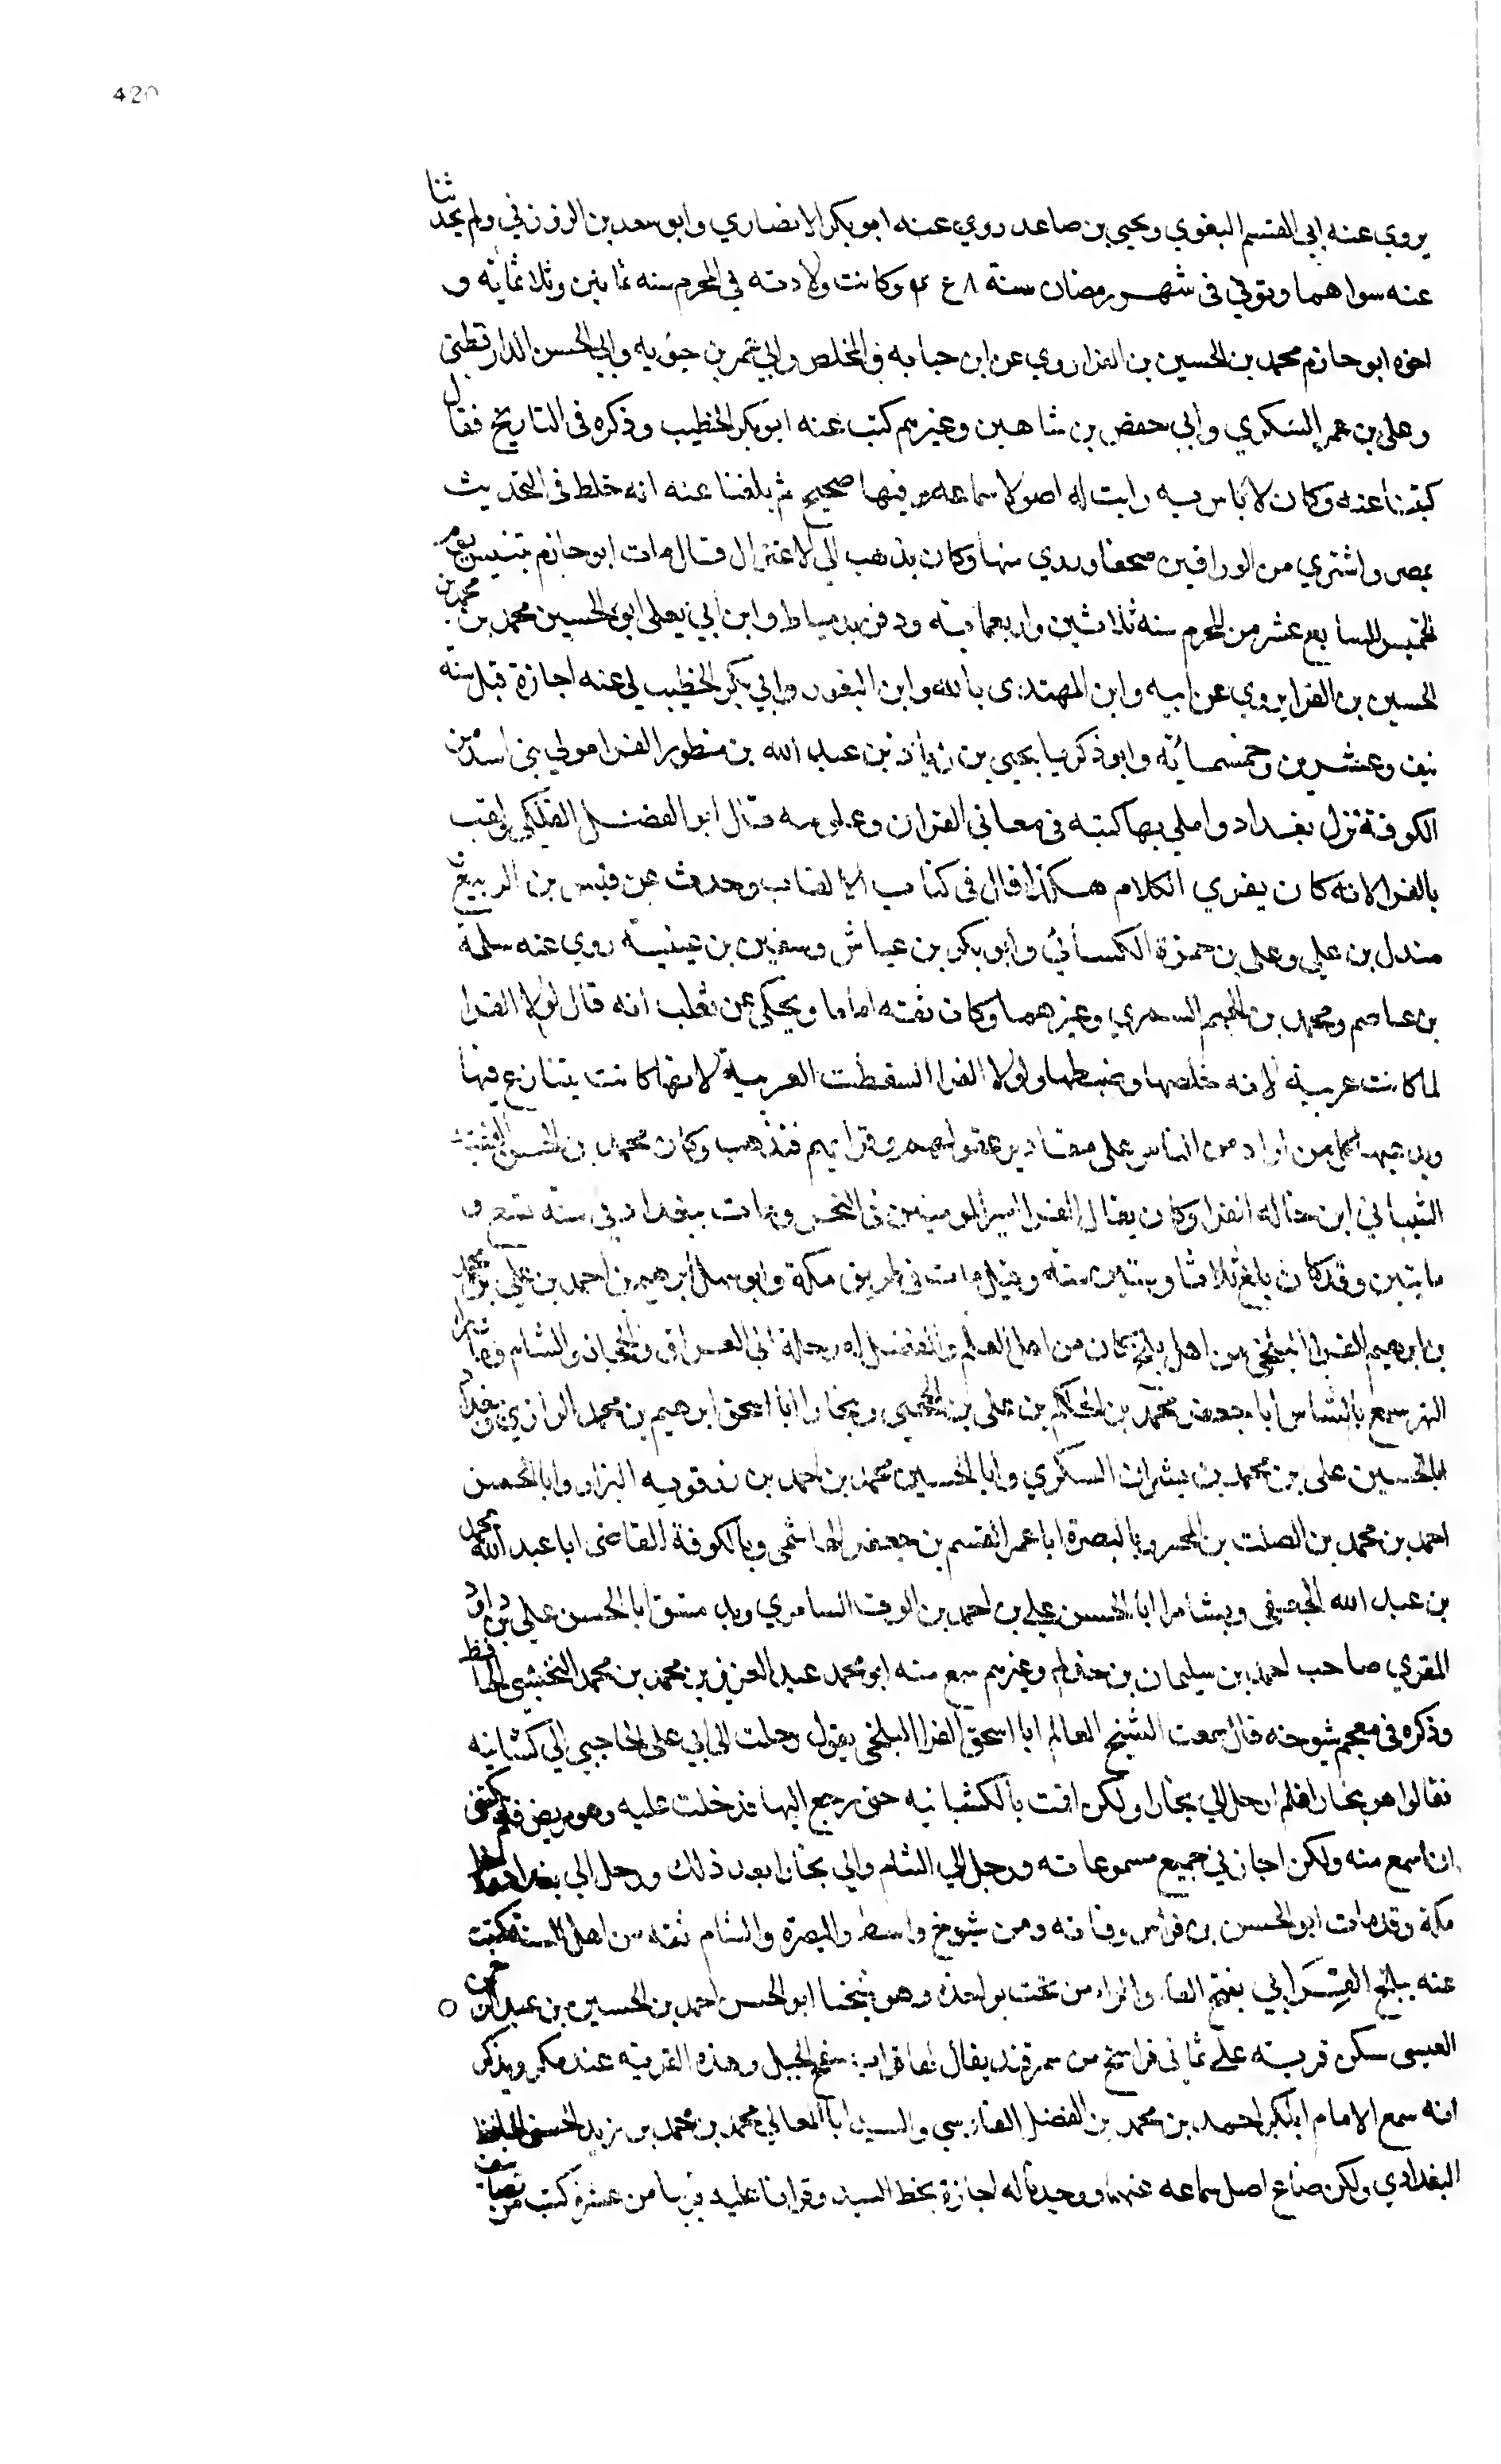 420
يروي عنه ابي القسم البغوي ويحيى بن صاعد روي عنه ابو بكر الانصاري وابو سعد بن الزوزني ولم يحدثنا
عنه سواهما وتوفي في شهر رمضان سنة وكانت ولادته في المحرم سنه ثمانين وثلاثمائه و
اخوه ابو حازم محمد بن الحسين بن الفرا روي عن ابن حبابه والمخلص وابي عمر بن حيويه وابي الحسن الدارقطني
وعلي بن عمر السكري وابي حفص بن شاهين وغيرهم كتب عنه ابو بكر الخطيب وذكره في التاريخ فقال
كتبنا عنه وكان لا باس به رايت له اصولا سماعه فيها صحيح ثم بلغنا عنه انه خلط في التحديث
بمصر واشتري من الوراقين صحفا وروي منها وكان يذهب الي الاعتزال قال مات ابو حازم بتنيس يوم
الخميس السابع عشر من المحرم سنه ثلاثين واربعمايه ودفن بدمياط وابن ابي يعلى ابو الحسين محمد بن محمد بن
الحسين بن الفرا يروي عن ابيه وابن المهتدى بالله وابن النقور وابي بكر الخطيب لي عنه اجازة قبل سنة
نيف وعشرين وخمسمائه وابو زكريا يحيى بن زياد بن عبد الله بن منظور الفرا مولي بني اسد من
الكوفة نزل بغداد واملي بها كتبه في معاني القران وعلومه قال ابو الفضل الفلكي لقب
بالفرا لانه كان يفري الكلام هكذا قال في كتاب الالقاب وحدث عن قيس بن الربيع
مندل بن علي وعلي بن حمزة الكسائي وابو بكر بن عياش وسفين بن عيينة روي عنه سلمة
بن عاصم ومحمد بن الجهم السمري وغيرهما وكان ثقته اماما ويحكى عن ثعلب انه قال لولا الفرا
لما كانت عربية لانه خلصها وضبطها ولولا الفرا لسقطت العربية لانها كانت يتنازع فيها
ويدعيها كل من اراد من الناس علي مقادير عقولهم وقرايحهم فتذهب وكان محمد بن الحسن الفقيه
الشيباني ابن خاله الفرا وكان يقال الفرا امير المومنين في النحو ومات ببغداد في سنة تسع و
مايتين وقد كان بلغ ثلاثا وستين سنه وقيل مات في طريق مكة وابو ابرهيم بن احمد بن علي بن محمد
بن ابرهيم الفرا البلخي من اهل بلخ كان من اهل العلم والفضل له رحلة الى العراق والحجاز والشام وما ورا
النهر سمع بالشاس ابا جعفر محمد بن الحاكم بن علي بن وببخارا ابا اسحق ابرهيم بن محمد الرازي وببغداد
ابا الحسين علي بن محمد بن بشران السكري وابا الحسين محمد بن احمد بن زرقويه البزاز وابا الحسن
احمد بن محمد بن الصلت بن المجبر وبالبصرة ابا عمر القسم بن جعفر الهاشمي وبالكوفة القاضي ابا عبد الله محمد
بن عبد الله الجعفي وبسامرا ابا الحسن علي بن احمد بن السامري وبدمشق ابا الحسن علي بن داود
المقري صاحب احمد بن سليمان بن حذلم وغيرهم سمع منه ابو محمد عبد العزيز بن محمد بن محمد النخشبي الحافظ
وذكره في معجم شيوخه قال سمعت الشيخ العالم ابا اسحق الفرا البلخي يقول رحلت الى ابي علي الحاجبي الي كشانيه
فقالوا هو ببخارا فلم ارحل الي بخارا ولكن اقمت بالكشانيه حتى رجع اليها فدخلت عليه وهو مريض فلم يمكنني
ان اسمع منه ولكن اجاز لي جميع مسموعاته ورحل الي الشام والي بخارا بعد ذلك ورحل الي بغداد ودخل
مكة وقد مات ابو الحسن بن فراس وفاته ومن شيوخ واسط والبصرة والشام ثقه من اهل السنة كتبت
عنه ببلخ الفَرَابي بفتح الفا والراء من تحت بواحدة وهو شيخنا ابو الحسن احمد بن الحسين بن عبد الرحمن
العبسي سكن قرية علي ثماني فراسخ من سمرقند يقال لها فراب سفح الجبل وهذه القرية عند ويذكر
انه سمع الامام ابا بكر احمد بن محمد بن الفضل الفارسي والسيد ابا المعالي محمد بن محمد بن زيد الحسني الحافظ
البغدادي ولكن ضاع اصل سماعه عنهما ووجدنا له اجازة بخط السيد وقرانا عليه كتب من تصانيف